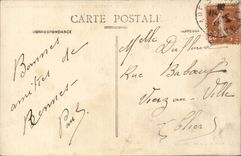 CARTE POSTALE
CORRESPONDANCE
Bonnes
amitiés de
Rennes
Melle Duflous
Rue Babœuf
Vierzon-Ville
(Cher)